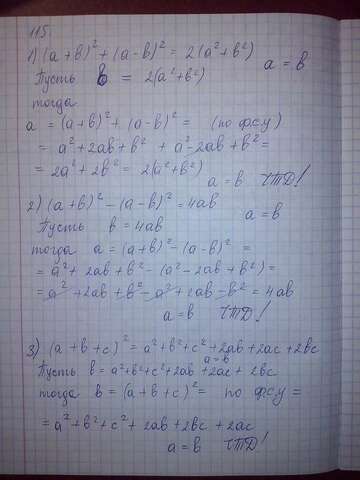 115.
1) (a+b)² + (a-b)² = 2(a²+b²) a = b
Пусть b = 2(a²+b²)
тогда
a = (a+b)² + (a-b)² = (по фсу)
= a²+2ab+b² + a²-2ab+b² =
= 2a²+2b² = 2(a²+b²)
a = b ЧТД!
2) (a+b)² - (a-b)² = 4ab a = b
Пусть b = 4ab
тогда a = (a+b)² - (a-b)² =
= a² + 2ab + b² - (a² - 2ab + b²) =
= a² + 2ab + b² - a² + 2ab - b² = 4ab
a = b ЧТД!
3) (a+b+c)² = a²+b²+c²+2ab+2ac+2bc
a = b
Пусть b = a²+b²+c²+2ab+2ac+2bc
тогда b = (a+b+c)² = по фсу =
= a²+b²+c²+2ab+2bc+2ac
a = b ЧТД!